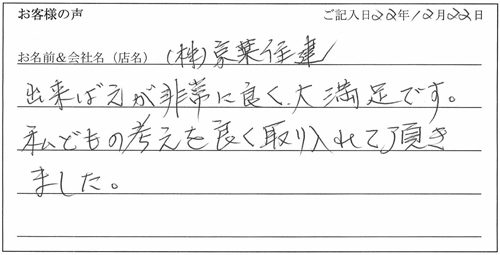 お客様の声 ご記入日22年12月22日
お名前&会社名（店名） (株)京葉住建
出来ばえが非常に良く、大満足です。
私どもの考えを良く取り入れて頂き
ました。